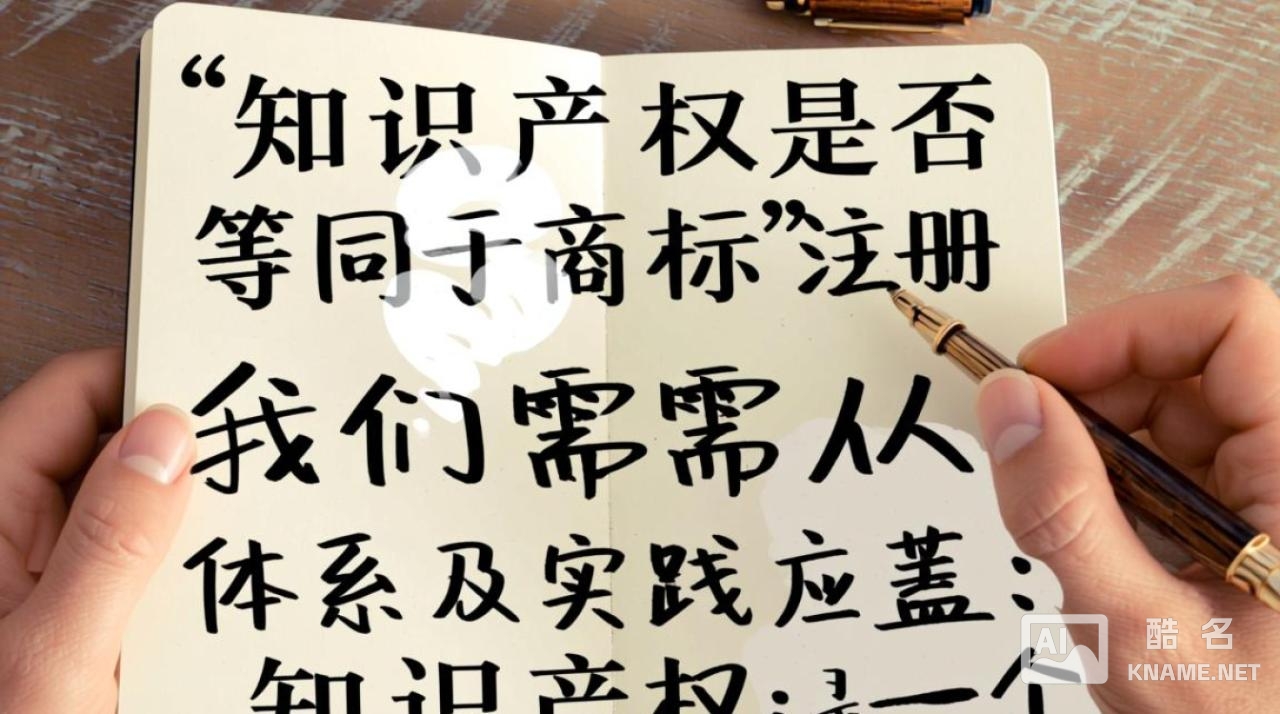 “知识产权是否
等同于商标”注册
我们需需从
体系及实践应蓋：
知识产权：一个
AI 酷名
KNAME.NET